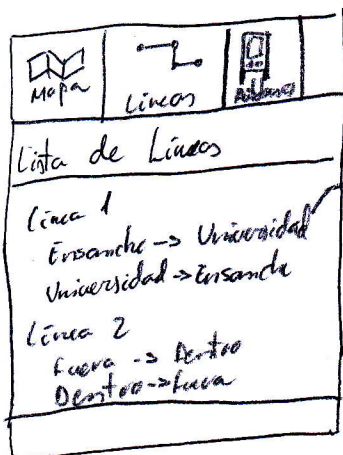 Mapa
Líneas
Lista de Líneas
Línea 1
Ensanche -> Universidad
Universidad -> Ensanche
Línea 2
Fuera -> Dentro
Dentro -> Fuera